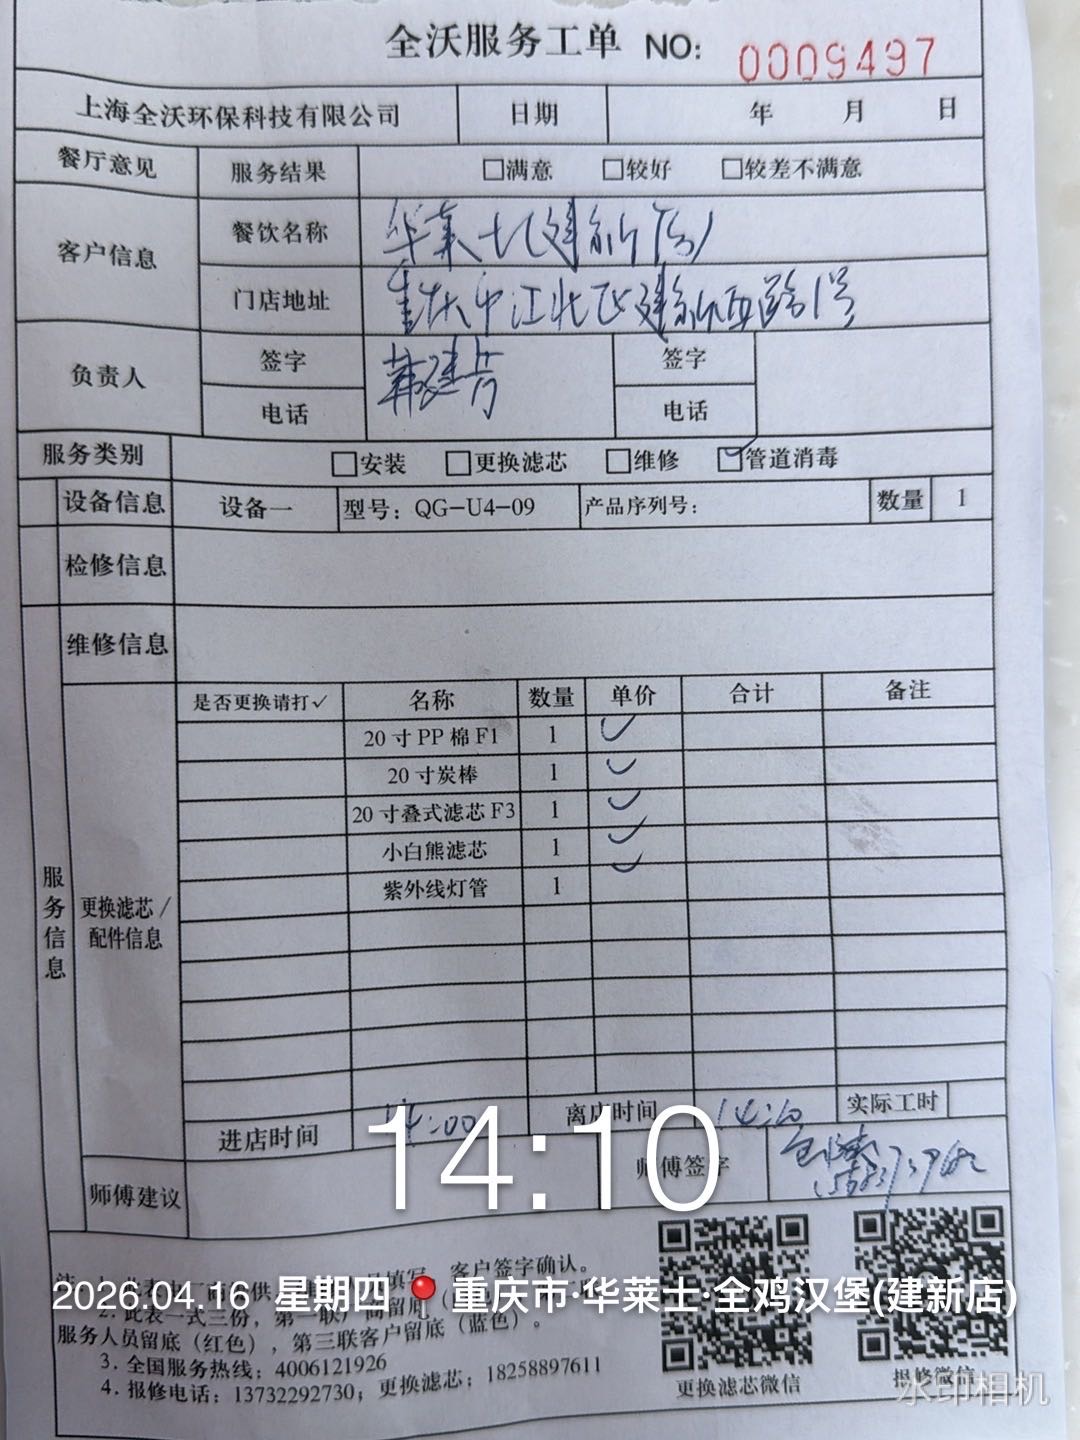 全沃服务工单 NO: 0009497
上海全沃环保科技有限公司 日期 年 月 日
餐厅意见 服务结果 □满意 □较好 □较差不满意
客户信息 餐饮名称 华莱士(建新店)
门店地址 重庆市江北区建新西路1号
负责人 签字 韩建芳 签字
电话 电话
服务类别 □安装 □更换滤芯 □维修 ☑管道消毒
设备信息 设备一 型号：QG-U4-09 产品序列号： 数量 1
检修信息
维修信息
服务信息
更换滤芯/配件信息
是否更换请打✓ 名称 数量 单价 合计 备注
20寸PP棉F1 1 ✓
20寸炭棒 1 ✓
20寸叠式滤芯F3 1 ✓
小白熊滤芯 1 ✓
紫外线灯管 1 ✓
进店时间 14:00 离店时间 14:10 实际工时
师傅建议 师傅签字
14:10
填写，客户签字确认。
2026.04.16 星期四 重庆市·华莱士·全鸡汉堡(建新店)
2. 此表一式三份，第一联厂商留底
服务人员留底（红色），第三联客户留底（蓝色）。
3. 全国服务热线：4006121926
4. 报修电话：13732292730；更换滤芯：18258897611
更换滤芯微信 报修微信
水印相机